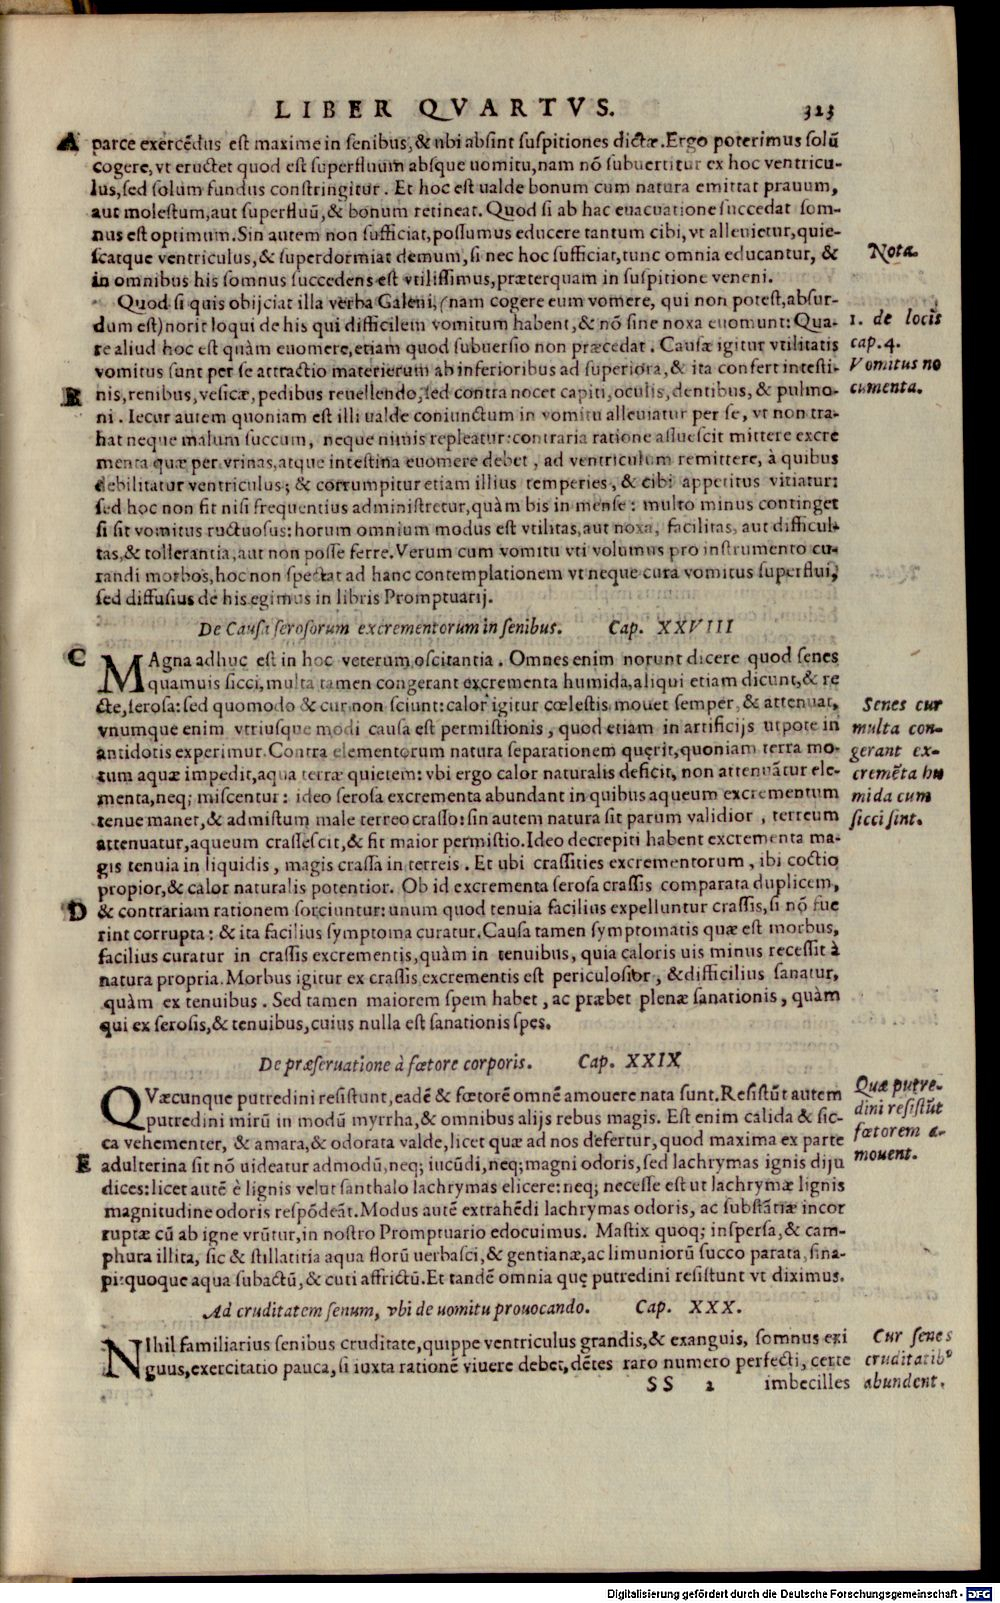 LIBER QVARTVS. 323
A parce exercẽdus est maxime in senibus, & ubi absint suspitiones dictæ. Ergo poterimus solũ
cogere, vt eructet quod est superfluum absque uomitu, nam nõ subuertitur ex hoc ventricu-
lus, sed solum fundus constringitur. Et hoc est ualde bonum cum natura emittat prauum,
aut molestum, aut superfluũ, & bonum retineat. Quod si ab hac euacuatione succedat som-
nus est optimum. Sin autem non sufficiat, possumus educere tantum cibi, vt alleuietur, quie-
scatque ventriculus, & superdormiat demum, si nec hoc sufficiat, tunc omnia educantur, &
in omnibus his somnus succedens est vtilissimus, præterquam in suspitione veneni.
Nota.
Quod si quis obijciat illa verba Galeni, (nam cogere eum vomere, qui non potest, absur-
dum est) norit loqui de his qui difficilem vomitum habent, & nõ sine noxa euomunt: Qua-
re aliud hoc est quàm euomere, etiam quod subuersio non præcedat. Causæ igitur vtilitatis
vomitus sunt per se attractio materierum ab inferioribus ad superiora, & ita confert intesti-
B nis, renibus, vesicæ, pedibus reuellendo, sed contra nocet capiti, oculis, dentibus, & pulmo-
ni. Iecur autem quoniam est illi ualde coniunctum in vomitu alleuiatur per se, vt non tra-
hat neque malum succum, neque nimis repleatur: contraria ratione assuescit mittere excre
menta quæ per vrinas, atque intestina euomere debet, ad ventriculum remittere, à quibus
debilitatur ventriculus; & corrumpitur etiam illius temperies, & cibi appetitus vitiatur:
sed hoc non fit nisi frequentius administretur, quàm bis in mense: multo minus continget
si sit vomitus ructuosus: horum omnium modus est vtilitas, aut noxa, facilitas, aut difficul-
tas, & tollerantia, aut non posse ferre. Verum cum vomitu vti volumus pro instrumento cu-
randi morbos, hoc non spectat ad hanc contemplationem vt neque cura vomitus superflui,
sed diffusius de his egimus in libris Promptuarij.
1. de locis
cap. 4.
Vomitus no
cumenta.
De Causa serosorum excrementorum in senibus. Cap. XXVIII
C MAgna adhuc est in hoc veterum oscitantia. Omnes enim norunt dicere quod senes
quamuis sicci, multa tamen congerant excrementa humida, aliqui etiam dicunt, & re
cte, serosa: sed quomodo & cur non sciunt: calor igitur cœlestis mouet semper, & attenuat,
vnumque enim vtriusque modi causa est permistionis, quod etiam in artificijs utpote in
antidotis experimur. Contra elementorum natura separationem quęrit, quoniam terra mo-
tum aquæ impedit, aqua terræ quietem: vbi ergo calor naturalis deficit, non attenuãtur ele-
menta, neq; miscentur: ideo serosa excrementa abundant in quibus aqueum excrementum
tenue manet, & admistum male terreo crasso: sin autem natura sit parum validior, terreum
attenuatur, aqueum crassescit, & fit maior permistio. Ideo decrepiti habent excrementa ma-
gis tenuia in liquidis, magis crassa in terreis. Et ubi crassities excrementorum, ibi coctio
propior, & calor naturalis potentior. Ob id excrementa serosa crassis comparata duplicem,
D & contrariam rationem sortiuntur: unum quod tenuia facilius expelluntur crassis, si nõ fue
rint corrupta: & ita facilius symptoma curatur. Causa tamen symptomatis quæ est morbus,
facilius curatur in crassis excrementis, quàm in tenuibus, quia caloris uis minus recessit à
natura propria. Morbus igitur ex crassis excrementis est periculosior, & difficilius sanatur,
quàm ex tenuibus. Sed tamen maiorem spem habet, ac præbet plenæ sanationis, quàm
qui ex serosis, & tenuibus, cuius nulla est sanationis spes.
Senes cur
multa con-
gerant ex-
cremẽta hu
mida cum
sicci sint.
De præseruatione à fœtore corporis. Cap. XXIX
QVæcunque putredini resistunt, eadẽ & fœtorẽ omnẽ amouere nata sunt. Resistũt autem
putredini mirũ in modũ myrrha, & omnibus alijs rebus magis. Est enim calida & sic-
ca vehementer, & amara, & odorata valde, licet quæ ad nos defertur, quod maxima ex parte
E adulterina sit nõ uideatur admodũ, neq; iucũdi, neq; magni odoris, sed lachrymas ignis diju
dices: licet autẽ è lignis velut santhalo lachrymas elicere: neq; necesse est ut lachrymæ lignis
magnitudine odoris respõdeãt. Modus autẽ extrahẽdi lachrymas odoris, ac substãtiæ incor
ruptæ cũ ab igne vrũtur, in nostro Promptuario edocuimus. Mastix quoq; inspersa, & cam-
phura illita, sic & stillatitia aqua florũ uerbasci, & gentianæ, ac limuniorũ succo parata, sina-
pi: quoque aqua subactũ, & cuti affrictũ. Et tandẽ omnia quę putredini resistunt vt diximus.
Quæ putre-
dini resistũt
fœtorem a-
mouent.
Ad cruditatem senum, vbi de uomitu prouocando. Cap. XXX.
NIhil familiarius senibus cruditate, quippe ventriculus grandis, & exanguis, somnus exi
guus, exercitatio pauca, si iuxta rationẽ viuere debet, dẽtes raro numero perfecti, certe
Cur senes
cruditatibꝰ
abundent.
SS 2 imbecilles
Digitalisierung gefördert durch die Deutsche Forschungsgemeinschaft - DFG